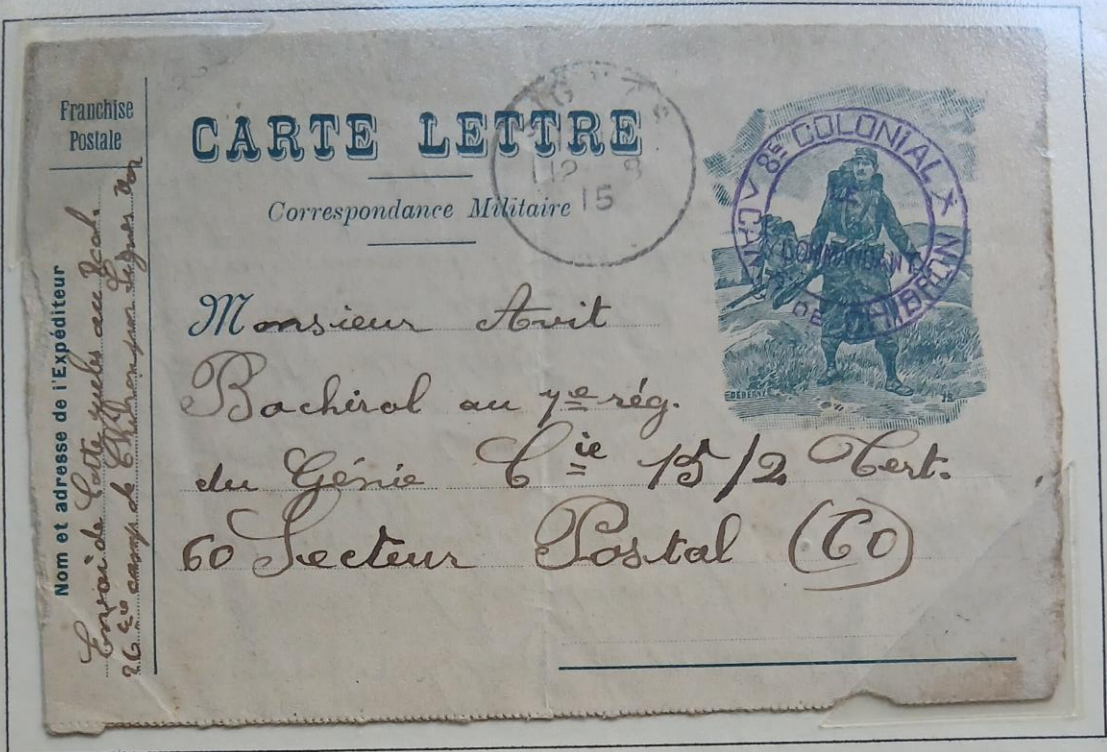 Franchise
Postale
Nom et adresse de l'Expéditeur
Envoi de Cotte Jules au Col.
26 Cie camp de Chibron par Signes Var
CARTE LETTRE
Correspondance Militaire
SIGNES
12 8
15
8E COLONIAL
COMMANDANT
CAMP DE CHIBRON
DEBERNY
Monsieur Avit
Bachirol au 7e rég.
du Génie Cie 15/2 Tert.
60 Secteur Postal (60)